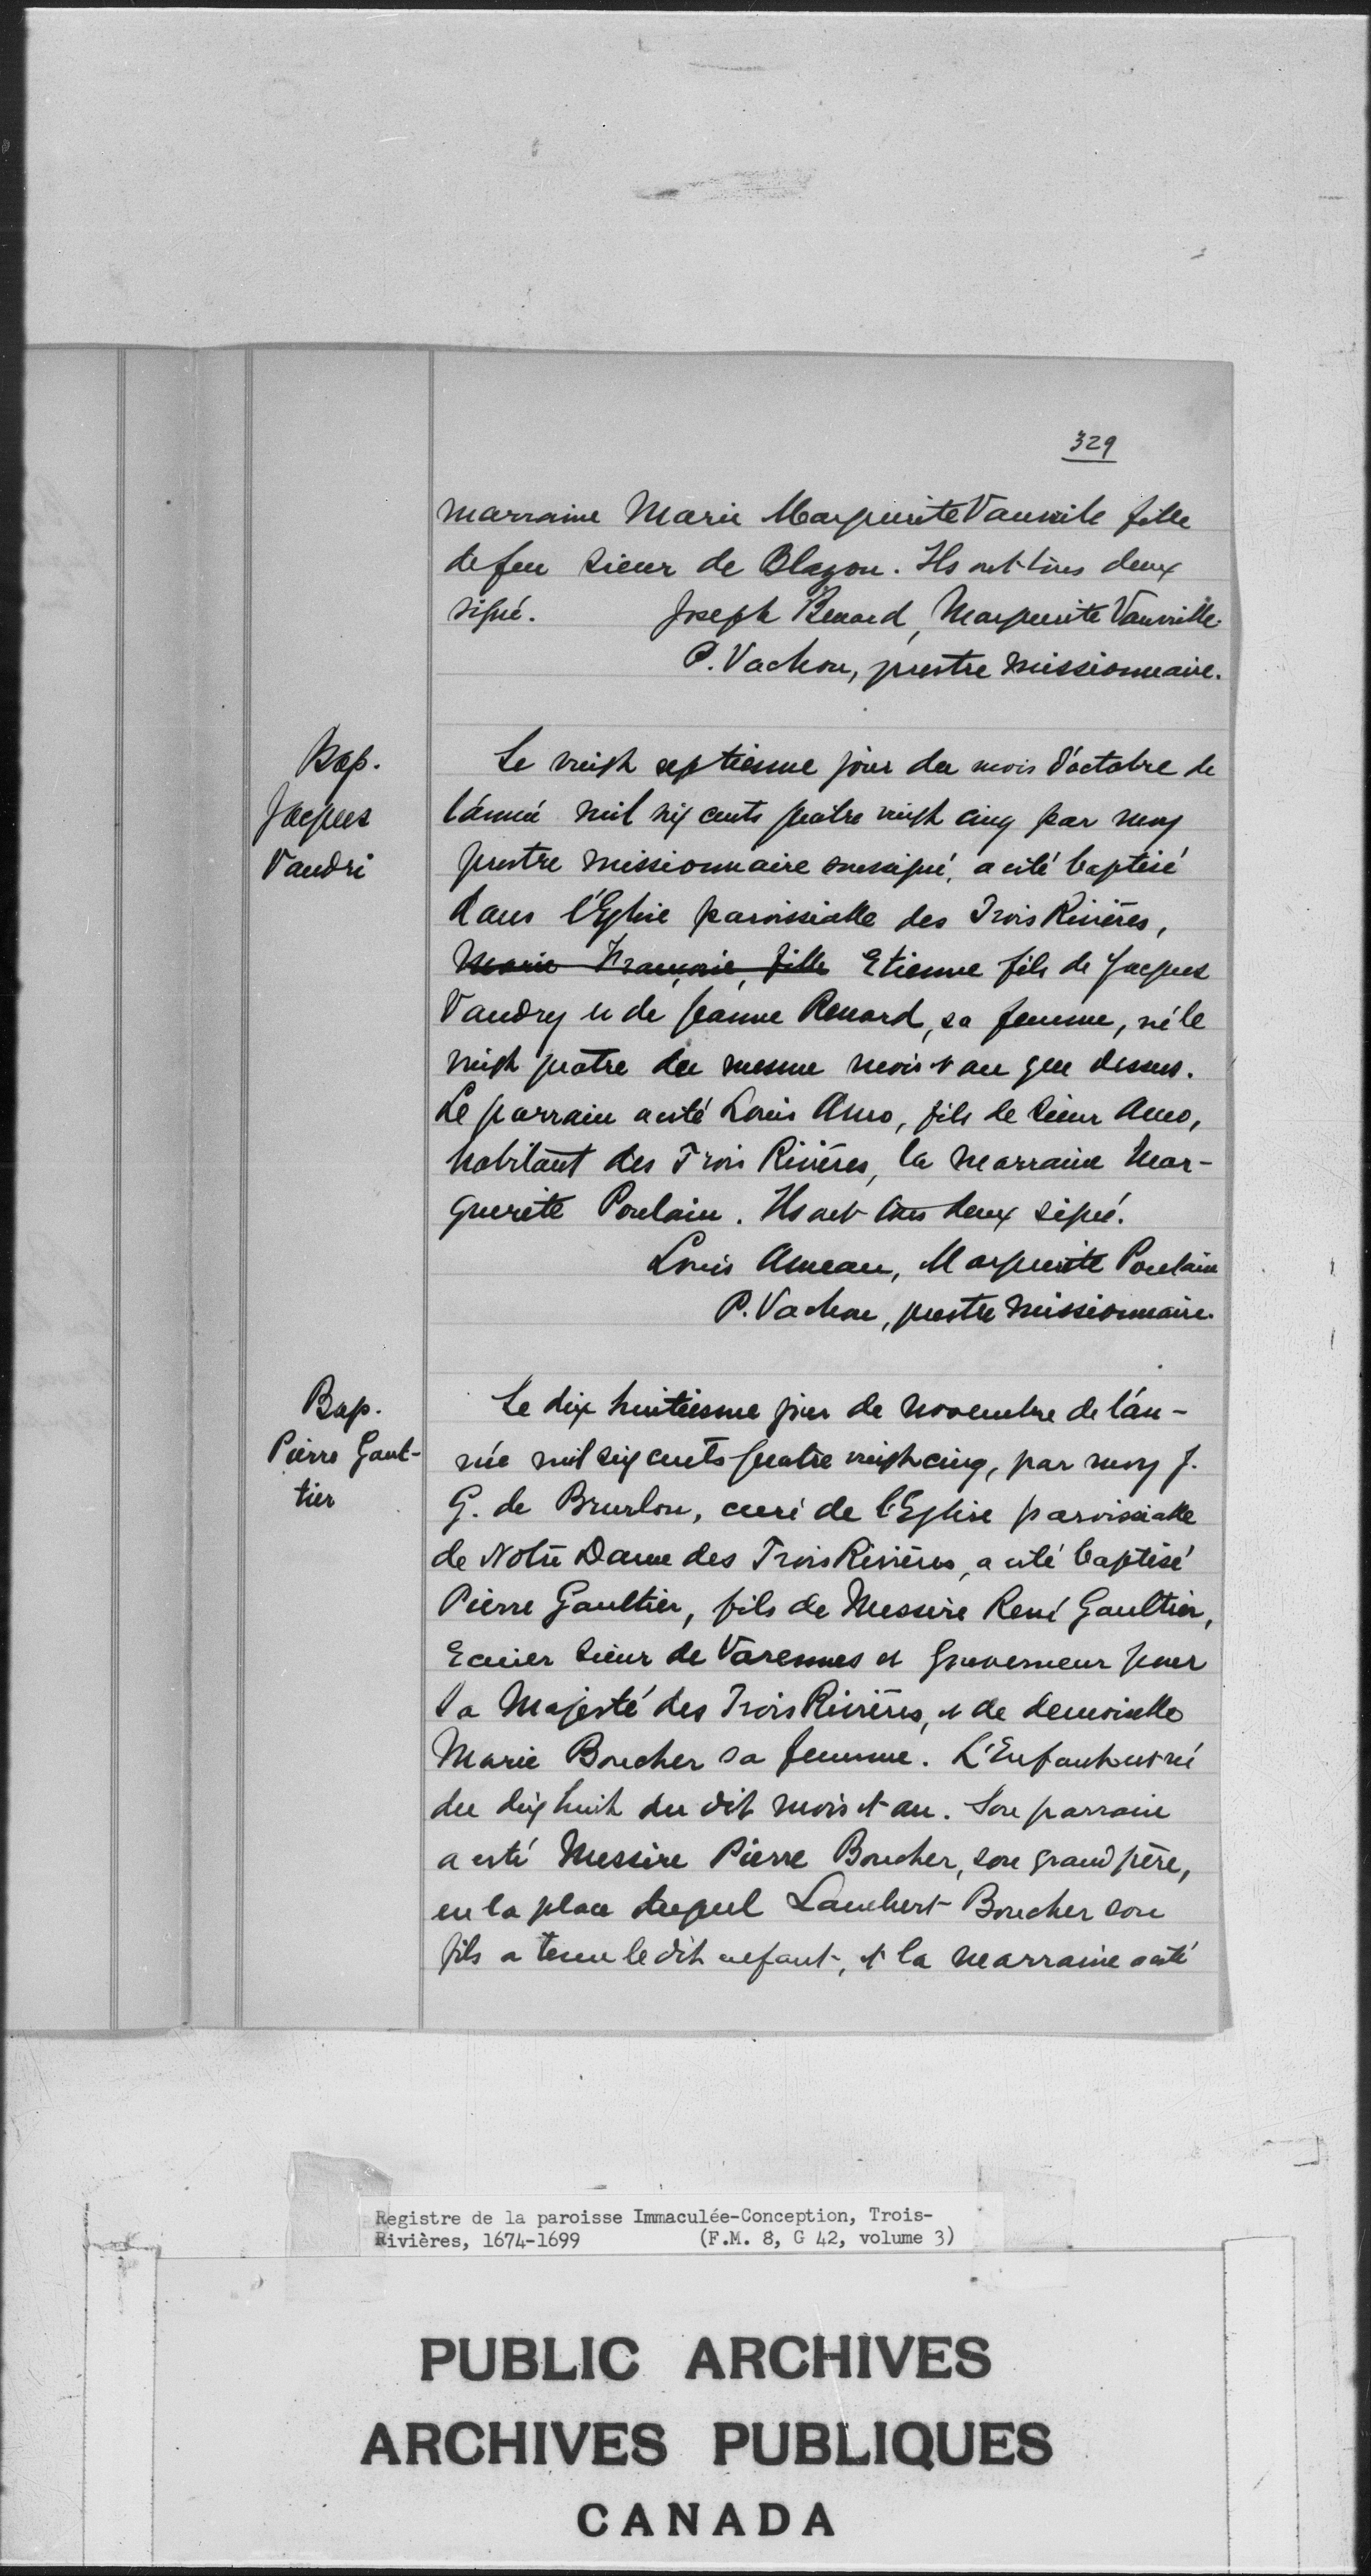 329
marraine Marie Marguerite Vauvile fille
de feu Sieur de Blazon. Ils ont tous deux
signé. Joseph Benard, Marguerite Vauville.
P. Vachon, prestre missionnaire.
Bap.
Jacques
Vaudri
Le vingt septiesme jour du mois d'octobre de
l'année mil six cents quatre vingt cinq par moy
prestre missionnaire sussigné, a esté baptisé
dans l'Eglise paroissialle des Trois Rivières,
Marie Françoise, fille Etienne fils de Jacques
Vaudry et de Jeanne Renard, sa femme, né le
vingt quatre du mesme mois et an que dessus.
Le parrain a esté Louis Amo, fils de Sieur Amo,
habitant des Trois Rivières, la marraine Mar-
guerite Poulain. Ils ont tous deux signé.
Louis Ameau, Marguerite Poulain
P. Vachon, prestre missionnaire.
Bap.
Pierre Gaul-
tier
Le dix huitiesme jour de novembre de l'an-
née mil six cents quatre vingt cinq, par moy J.
G. de Brurlon, curé de l'Eglise paroissialle
de Notre Dame des Trois Rivières, a esté baptisé
Pierre Gaultier, fils de Messire René Gaultier,
Ecuier Sieur de Varennes et Gouverneur pour
Sa Majesté des Trois Rivières, et de demoiselle
Marie Boucher sa femme. L'Enfant est né
du dix huit du dit mois et an. Son parrain
a esté Messire Pierre Boucher, son grand père,
en la place duquel Lambert Boucher son
fils a tenu le dit enfant, et la marraine a esté
Registre de la paroisse Immaculée-Conception, Trois-
Rivières, 1674-1699 (F.M. 8, G 42, volume 3)
PUBLIC ARCHIVES
ARCHIVES PUBLIQUES
CANADA